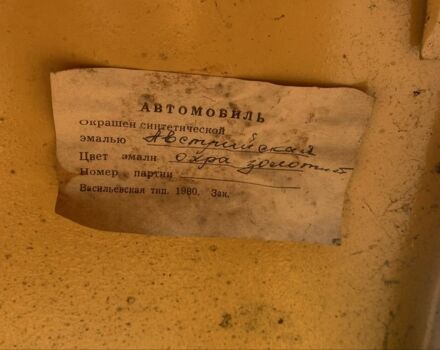 АВТОМОБИЛЬ
Окрашен синтетической
эмалью Австрийская
Цвет эмали Охра золотист
Номер партии
Васильевская тип. 1980. Зак.